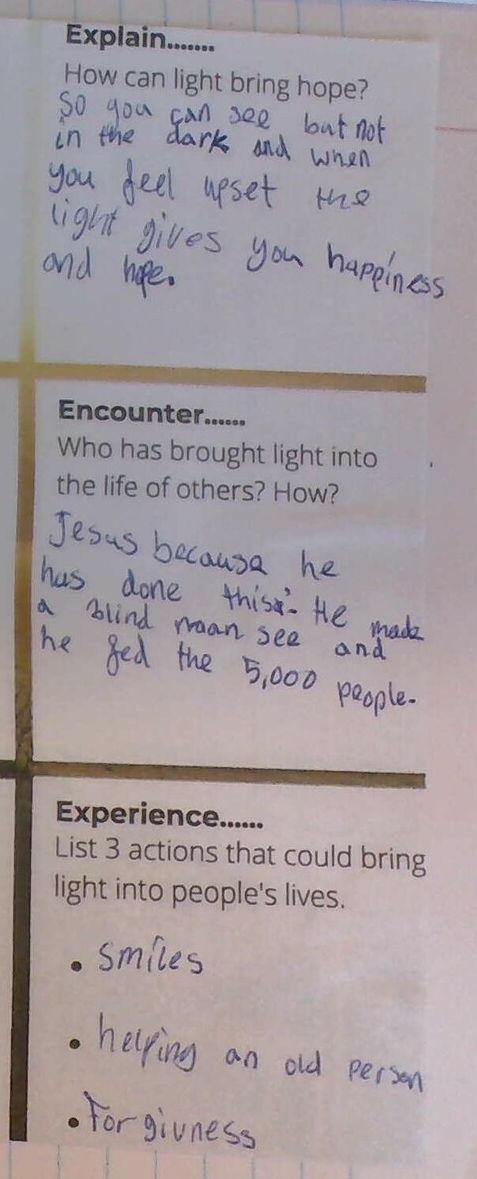 Explain.......
How can light bring hope?
So you can see but not
in the dark and when
you feel upset the
light gives you happiness
and hope.
Encounter......
Who has brought light into
the life of others? How?
Jesus because he
has done this:. He made
a blind maan see and
he fed the 5,000 people.
Experience......
List 3 actions that could bring
light into people's lives.
• smiles
• helping an old person
• Forgivness